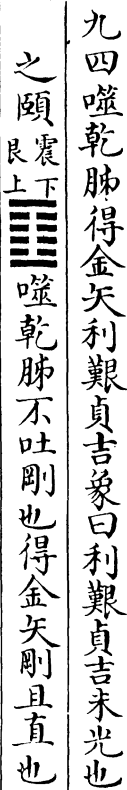 九四噬乾胏得金矢利艱貞吉象曰利艱貞吉未光也
之頤震下艮上噬乾胏不吐剛也得金矢剛且直也